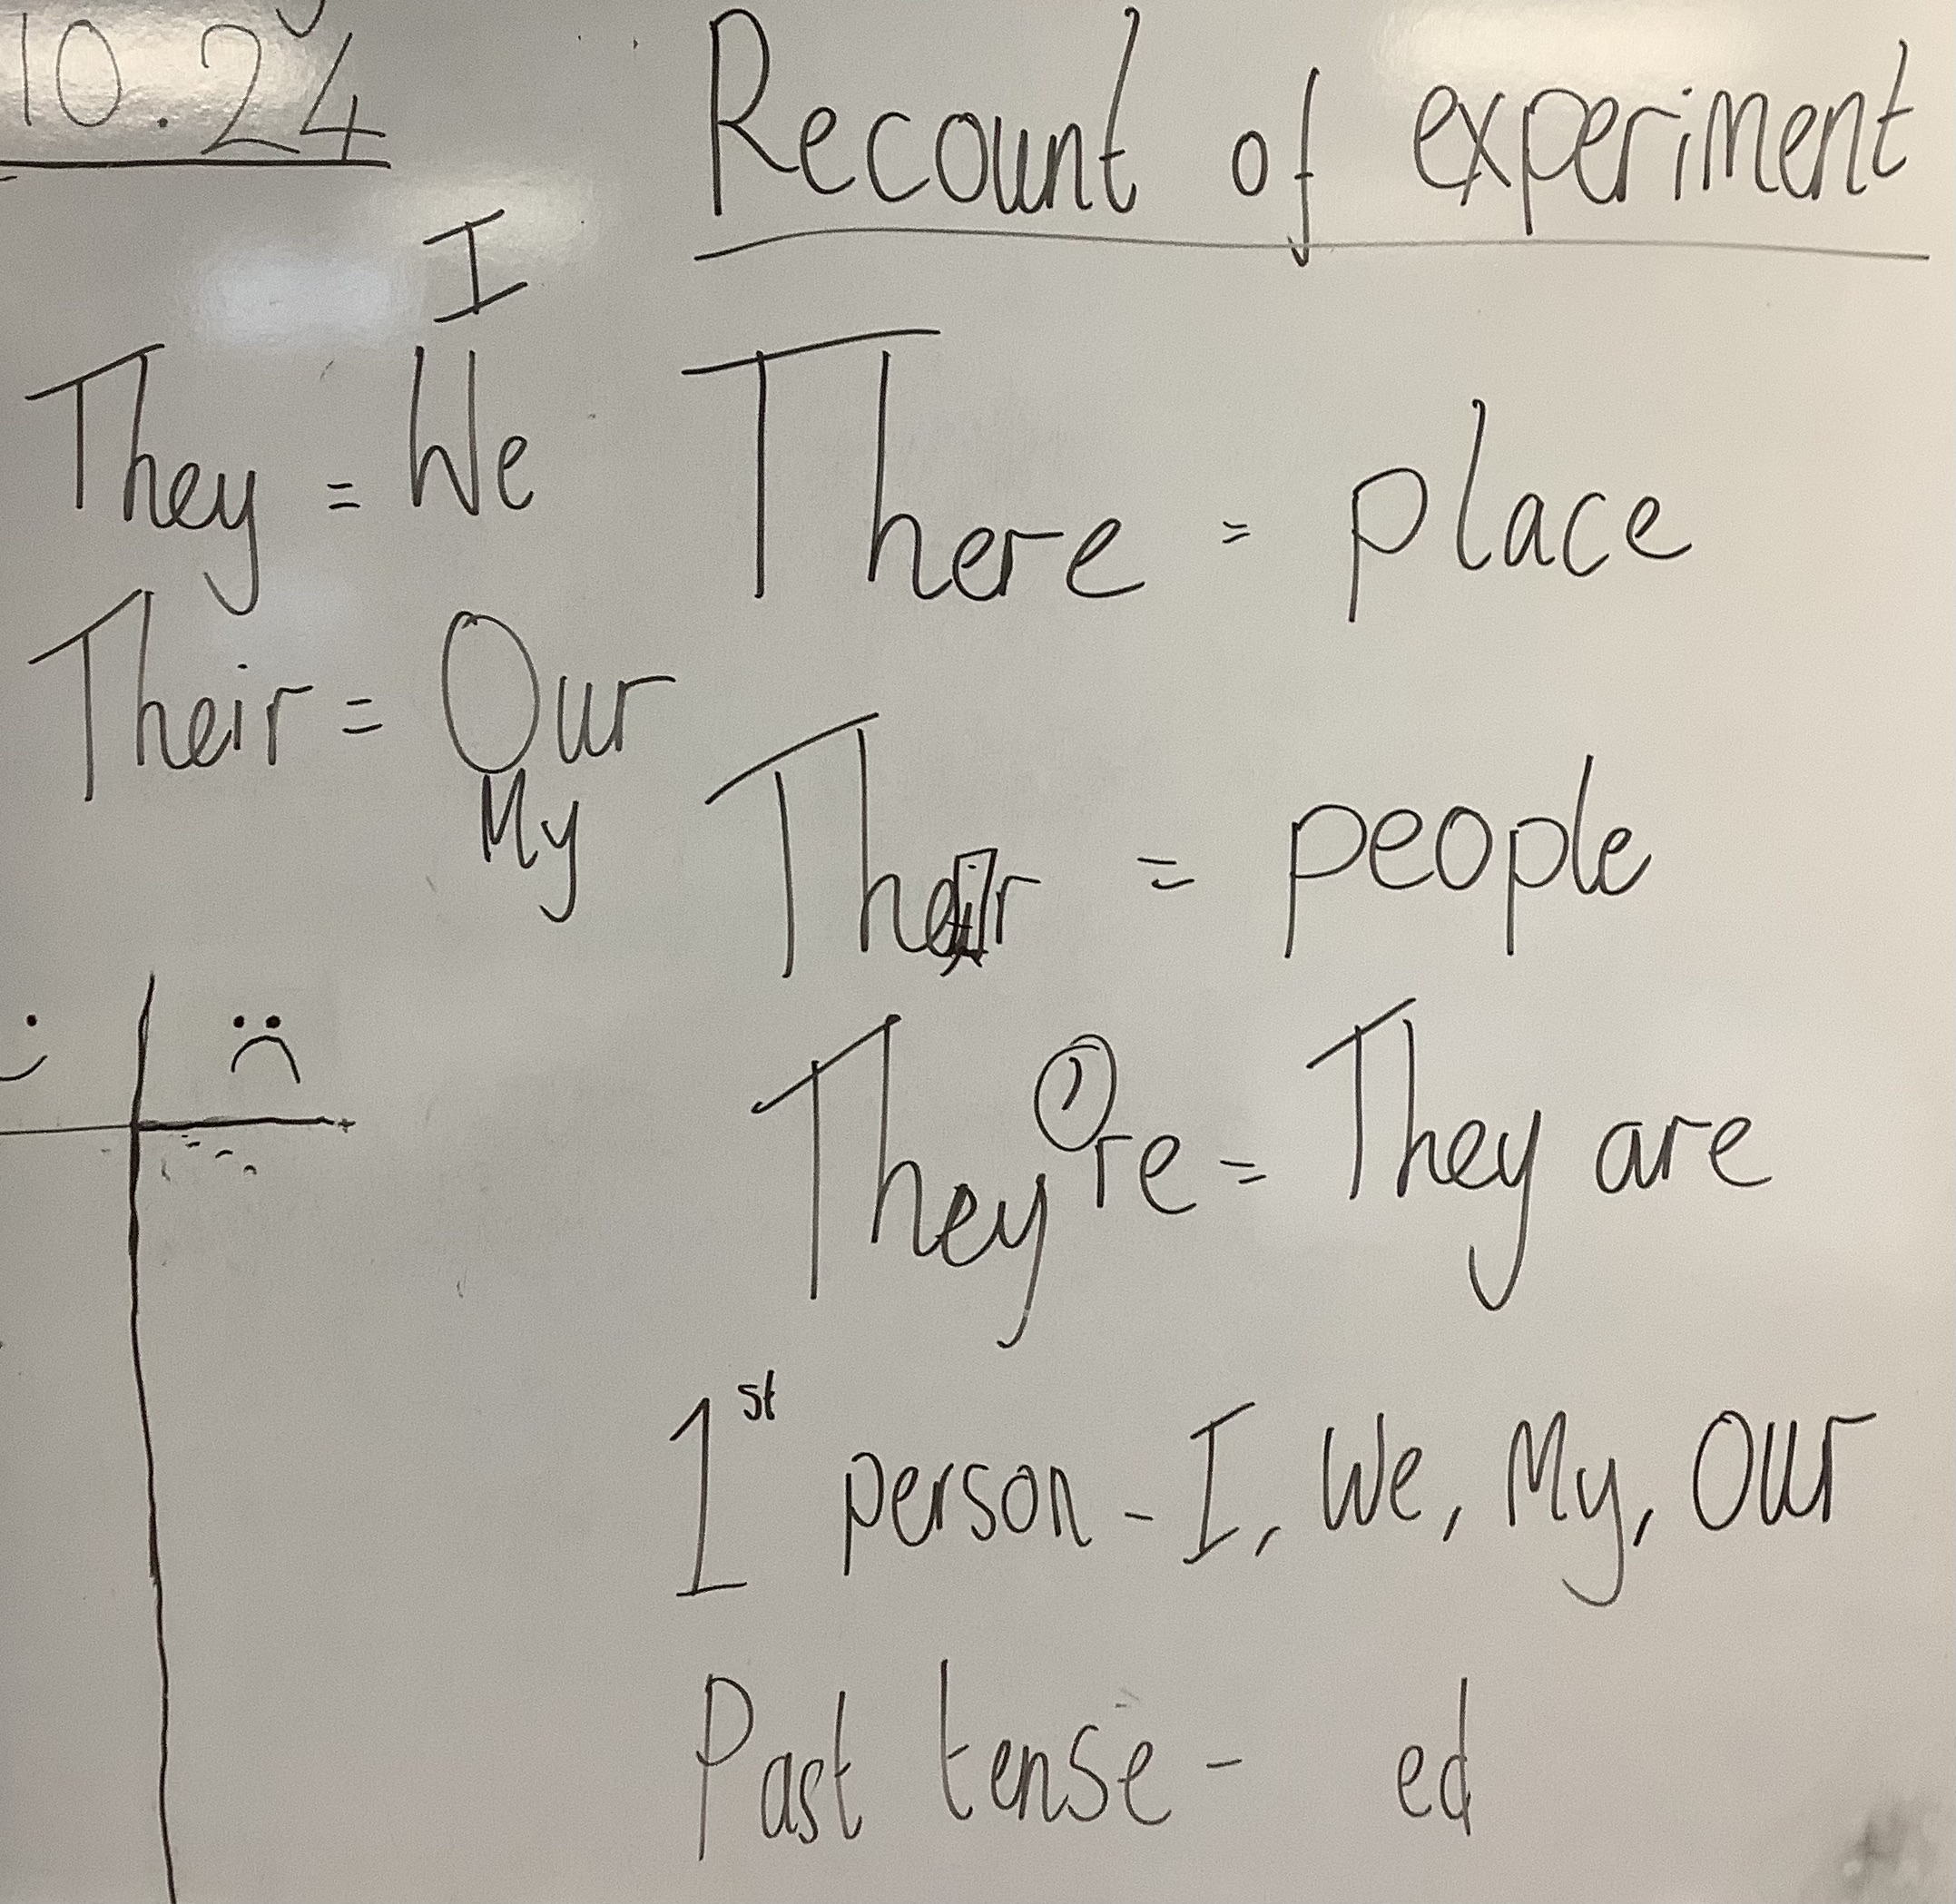 10.24
Recount of experiment
I
They = We
Their = Our
My
There = place
Their = people
They're = They are
1st person - I, We, My, Our
Past tense - ed